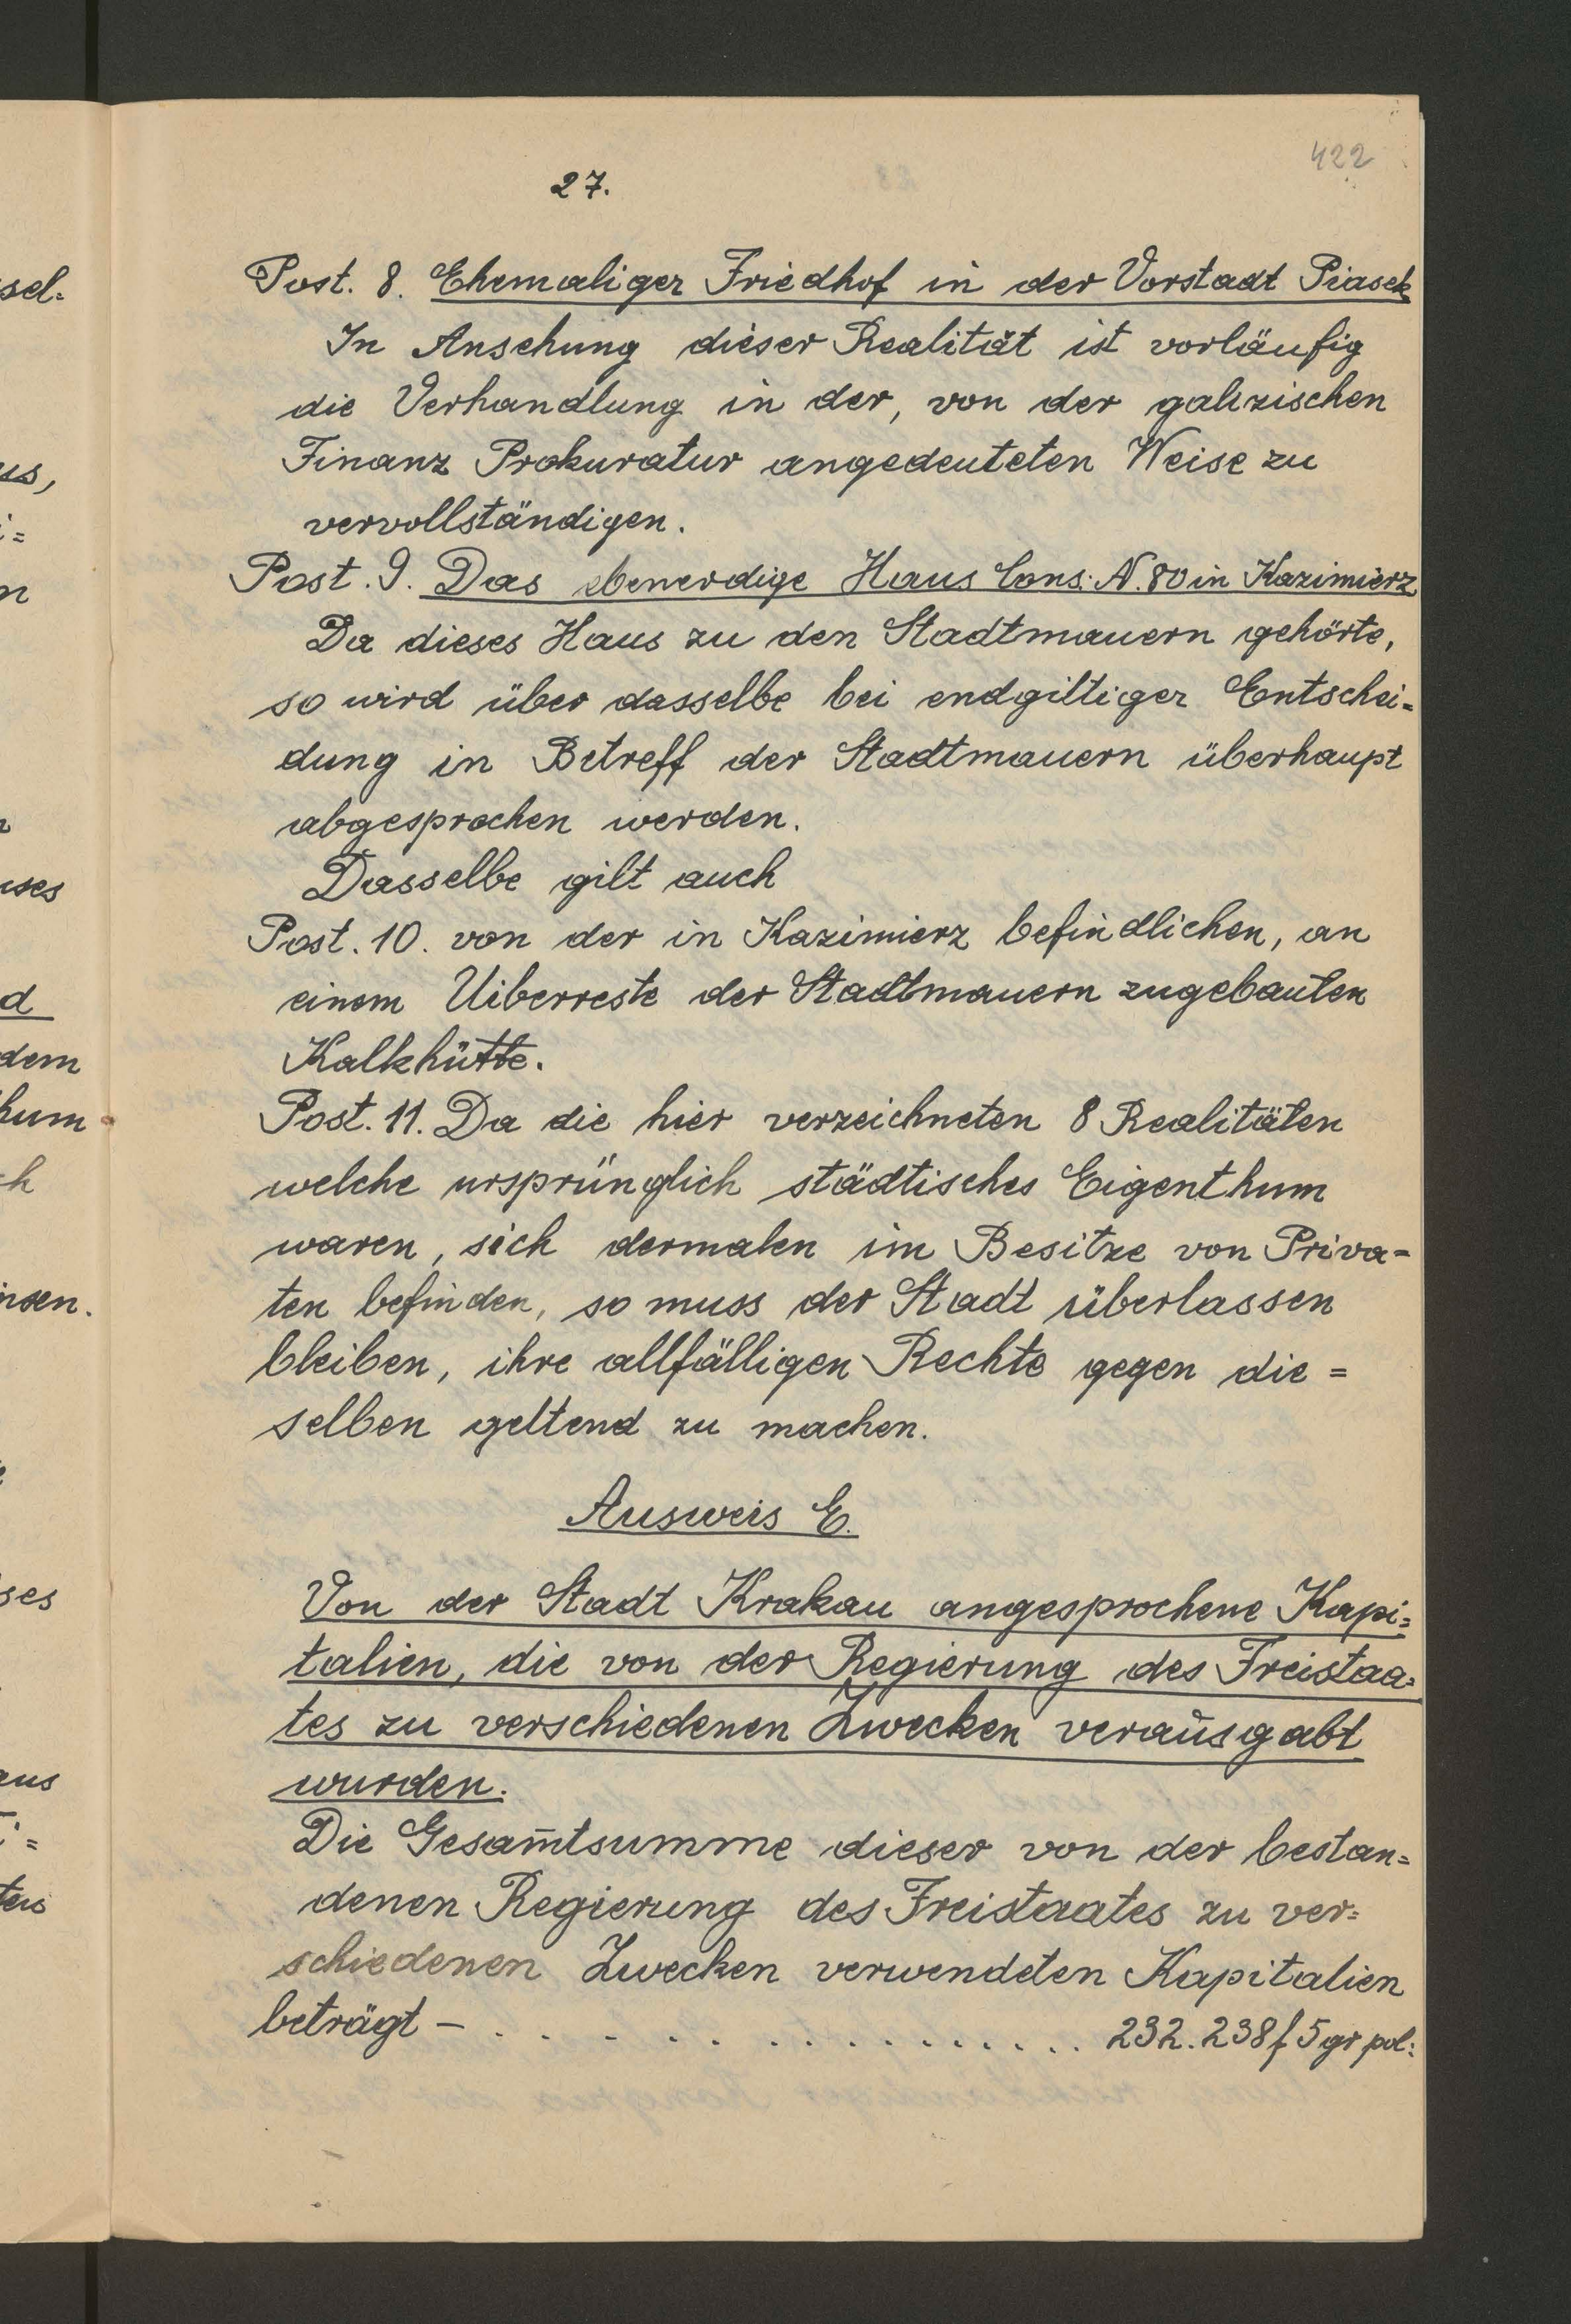 422
27.
Post. 8. Ehemaliger Friedhof in der Vorstadt Piasek
In Ansehung dieser Realität ist vorläufig
die Verhandlung in der, von der galizischen
Finanz Prokuratur angedeuteten Weise zu
vervollständigen.
Post. 9. Das ebenerdige Haus Cons: N. 80 in Kazimierz
Da dieses Haus zu den Stadtmauern gehörte,
so wird über dasselbe bei endgiltiger Entschei=
dung in Betreff der Stadtmauern überhaupt
abgesprochen werden.
Dasselbe gilt auch
Post. 10. von der in Kazimierz befindlichen, an
einem Uiberreste der Stadtmauern zugebauten
Kalkhütte.
Post. 11. Da die hier verzeichneten 8 Realitäten
welche ursprünglich städtisches Eigenthum
waren, sich dermalen im Besitze von Priva-
ten befinden, so muss der Stadt überlassen
bleiben, ihre allfälligen Rechte gegen die=
selben geltend zu machen.
Ausweis E.
Von der Stadt Krakau angesprochene Kapi=
talien, die von der Regierung des Freistaa=
tes zu verschiedenen Zwecken verausgabt
wurden.
Die Gesam̄tsumme dieser von der bestan=
denen Regierung des Freistaates zu ver=
schiedenen Zwecken verwendeten Kapitalien
beträgt – . . . . . . . . . . . . . . . . 232.238 f 5 gr pol:
sel=
us,
i=
n
uses
d
dem
hum
ch
insen.
ses
aus
i=
ten